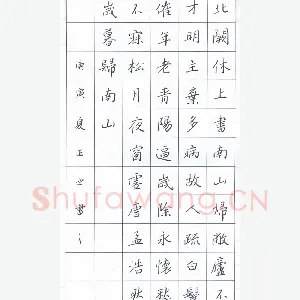 北闕休上書南山歸敝廬不
才明主棄多病故人疏白髮
催年老青陽逼歲除永懷愁
不寐松月夜窗虛唐孟浩然
歲暮歸南山
庚寅夏王
Shufawang.CN